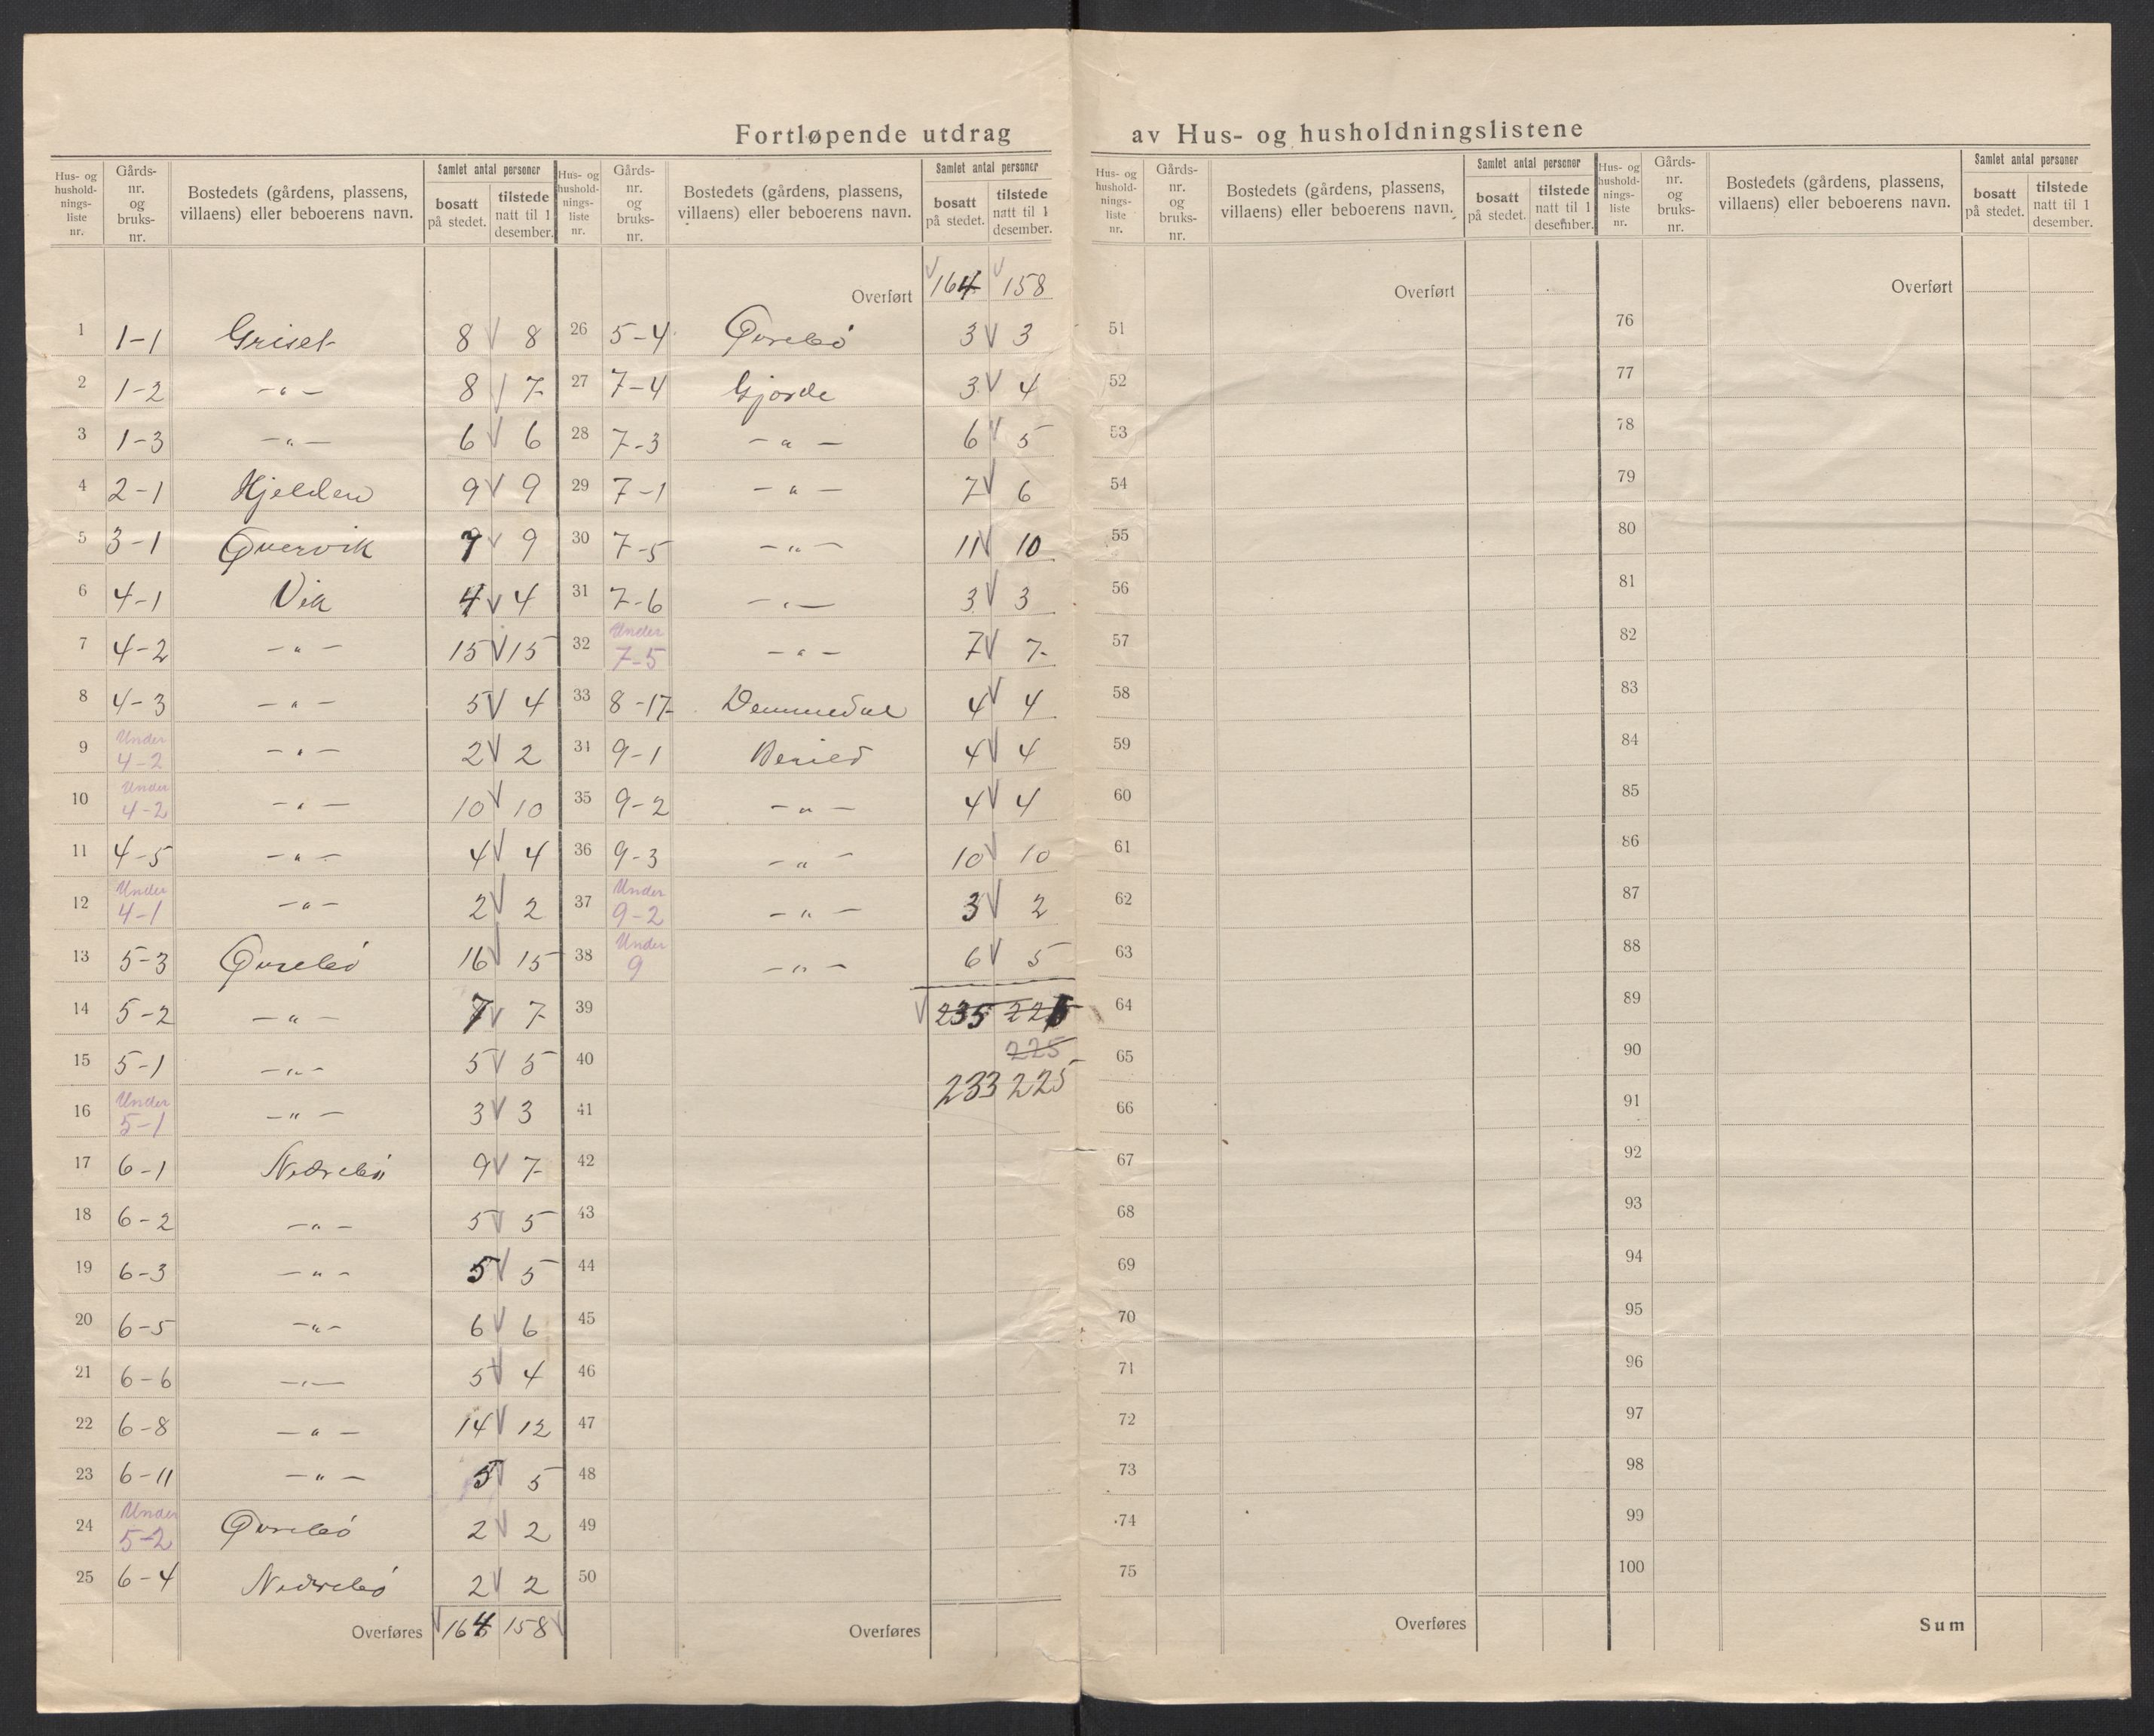 Fortløpende utdrag av Hus- og husholdningslistene
Hus- og husholdningsliste nr. | Gårdsnr. og bruksnr. | Bostedets (gårdens, plassens, villaens) eller beboerens navn. | Samlet antal personer | bosatt på stedet. | tilstede natt til 1 desember.
1 1-1 Griset 8 8
2 1-2 -"- 8 7
3 1-3 -"- 6 6
4 2-1 Hjelden 9 9
5 3-1 Qvervik 9
6 4-1 Vik 4 4
7 4-2 -"- 15 15
8 4-3 -"- 5 4
9 Under 4-2 -"- 2 2
10 Under 4-2 -"- 10 10
11 4-5 -"- 4 4
12 Under 4-1 -"- 2 2
13 5-3 Øvrebö 16 15
14 5-2 -"- 7 7
15 5-1 -"- 5 5
16 Under 5-1 -"- 3 3
17 6-1 Nedrebö 9 7
18 6-2 -"- 5 5
19 6-3 -"- 5 5
20 6-5 -"- 6 6
21 6-6 -"- 5 4
22 6-8 -"- 14 12
23 6-11 -"- 5 5
24 Under 5-2 Øvrebö 2 2
25 6-4 Nedrebö 2 2
Overføres 164 158
Hus- og husholdningsliste nr. | Gårdsnr. og bruksnr. | Bostedets (gårdens, plassens, villaens) eller beboerens navn. | Samlet antal personer | bosatt på stedet. | tilstede natt til 1 desember.
Overført 164 158
26 5-4 Øvrebö 3 3
27 7-4 Gjerde 3 4
28 7-3 -"- 6 5
29 7-1 -"- 7 6
30 7-5 -"- 11 10
31 7-6 -"- 3 3
32 Under 7-5 -"- 7 7
33 8-17 4 4
34 9-1 4 4
35 9-2 -"- 4 4
36 9-3 -"- 10 10
37 Under 9-2 -"- 3 2
38 Under 9 -"- 6 5
39 235
40 225
233 225
41
42
43
44
45
46
47
48
49
50
Overføres
Hus- og husholdningsliste nr. | Gårdsnr. og bruksnr. | Bostedets (gårdens, plassens, villaens) eller beboerens navn. | Samlet antal personer | bosatt på stedet. | tilstede natt til 1 desember.
Overført
51
52
53
54
55
56
57
58
59
60
61
62
63
64
65
66
67
68
69
70
71
72
73
74
75
Overføres
Hus- og husholdningsliste nr. | Gårdsnr. og bruksnr. | Bostedets (gårdens, plassens, villaens) eller beboerens navn. | Samlet antal personer | bosatt på stedet. | tilstede natt til 1 desember.
Overført
76
77
78
79
80
81
82
83
84
85
86
87
88
89
90
91
92
93
94
95
96
97
98
99
100
Sum